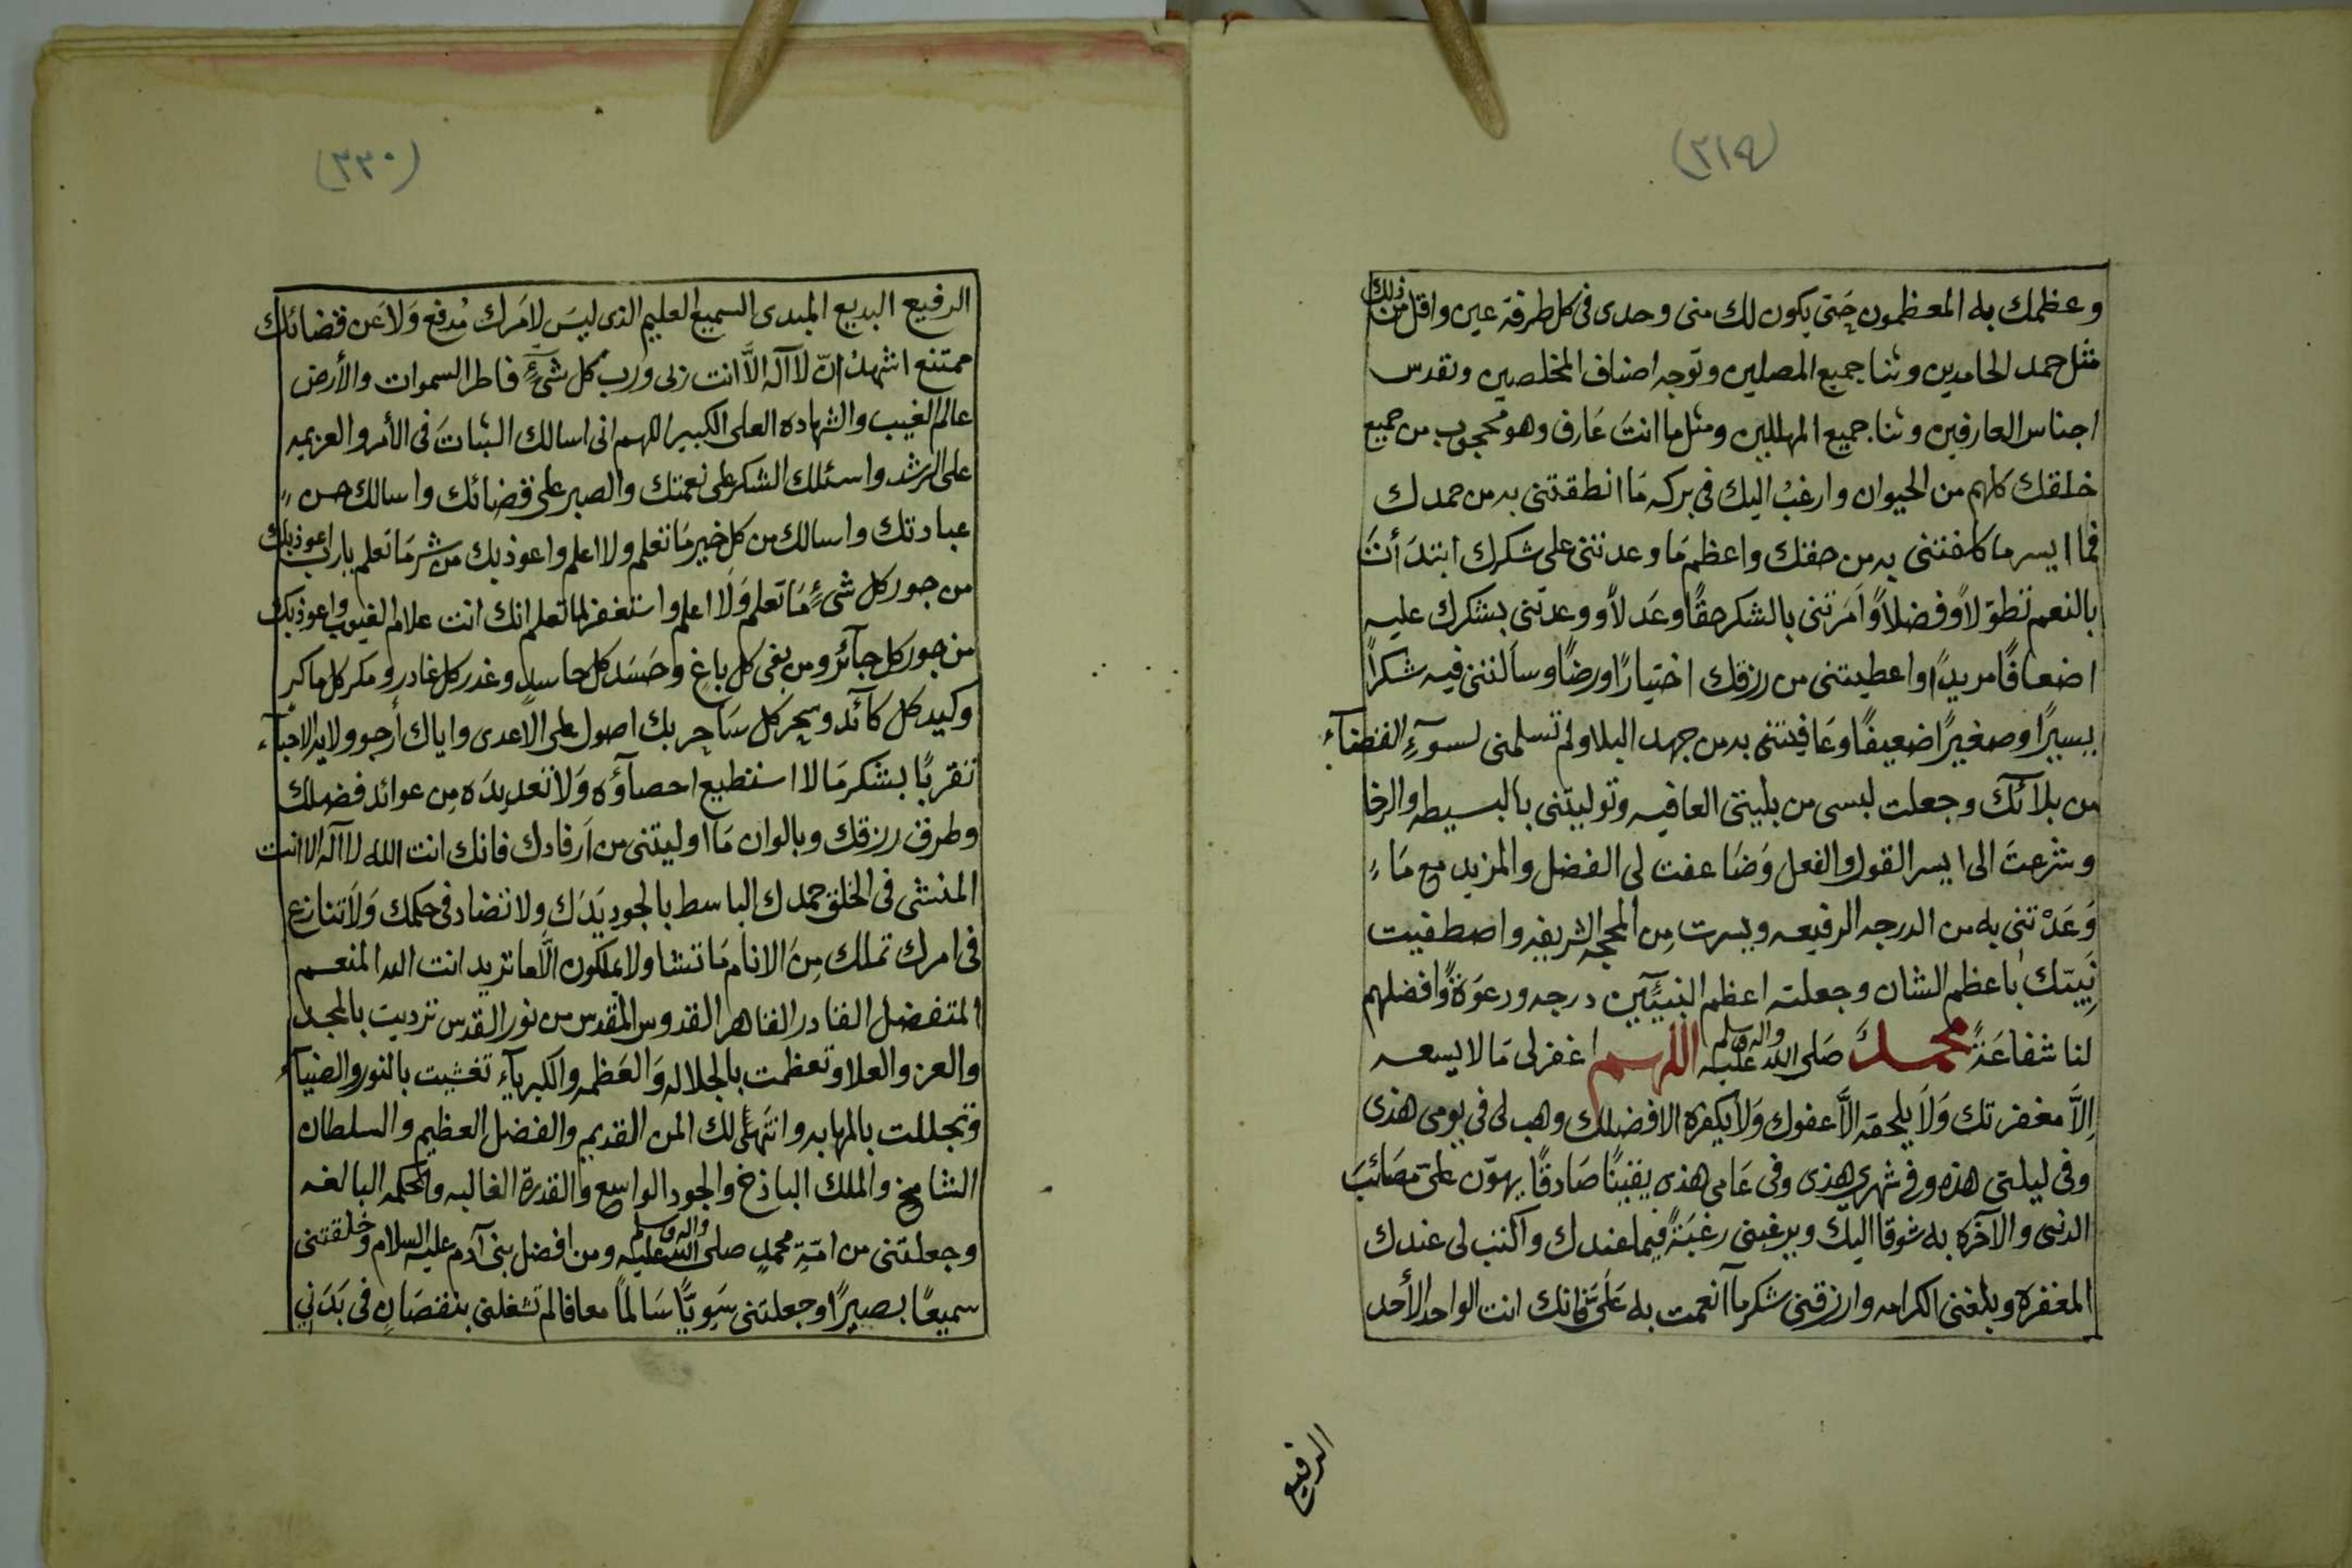 (٣١٩)
وعظمك به المعظمون حَتى يكون لك منى وحدى فى كل طرفة عين واقل من ذلك
مثل حمد الحامدين وثنا جميع المصلين وتوجه اصناف المخلصين وتقدس
اجناس العارفين وثنا جميع المهللين ومثل ما انتَ عَارف وهو محجوب من جميع
خلقك كلهم من الحيوان وارغبُ اليك فى بركه مَا انطقتنى به من حمدك
فما ايسر ما كلفتنى به من حقك واعظم مَا وعدتنى على شكرك ابتدَأتَ
بالنعم تطوّلاً وفضلاً وامَرتنى بالشكر حقًا وعَدلاً ووعدتنى بشكرك عليه
اضعافًا مريدًا واعطيتنى من رزقك اختيارًا ورضًا وسالتنى فيه شكراً
يسيرًا وصغيرًا ضعيفًا وعَافيتنى به من جهد البلا ولم تسلمنى لسوٓءِ القضآء
من بلآئك وجعلت لبسى من بليتى العافيه وتوليتنى بالبسيطه والرخا
وشرعتَ الى ايسر القول والفعل وَضَاعفت لى الفضل والمزيد مع مَا
وَعَدْتنى به من الدرجه الرفيعه ويسرت مِن المحجه الشريفه واصطفيت
نَبيّك باعظم الشان وجعلته اعظم النبيّٓين درجه ودعوَةً وافضلهم
لنا شفاعَةً محمدٍ صَلى الله عليه واله وسلم اللهم اغفر لى مَا لا يسعه
اِلاَّ مغفرتك وَلاَ يلحقه الاَّ عفوك وَلاَ يكفره الا فضلك وهب لى فى يومى هذى
وفى ليلتى هذه وفى شهرى هذى وفى عَامى هذى يقينًا صَادقًا يهوّن علىّ مصَائبَ
الدنى والآخره به شوقا اليك ويرغبنى رغبَةً فيما عندك واكتب لى عندك
المغفرة وبلغنى الكرامه وارزقنى شكر مآ انعمت به عَلَىَّ فانك انت الواحد الأحد
الرفيع
(٣٣٠)
الرفيع البديع المبدى السميع العليم الذى ليسَ لامَرك مُدفع وَلاَ عَن قضائك
ممتنع اشهدُ انّ لا آله الاَّ انت ربى ورب كل شىءٍ فاطر السموات والأرض
عالم الغيب والشهاده العلى الكبير اللهم انى اسالك الثباتَ فى الأمر والعزيمه
على الرشد واسئلك الشكر على نعمتك والصبر على قضائك واسالك حسن
عبادتك واسالك من كل خير مَا تعلم ولا اعلم واعوذ بك من شر مَا تعلم يا رب اعوذ بك
من جور كل شىءٍ مَا تعلم وَلاَ اعلم واستغفر لما تعلم انك انت علام الغيوب واعوذ بك
من جور كل جآئر ومن بغى كل باغٍ وحَسَد كل حاسدٍ وغدر كل غادر ومكر كل ماكرٍ
وكيد كل كآئد وسحر كل سَاحِر بك اصول على الاعدى واياك أرجو ولايه الاحبآء
تقربًا بشكر مَا لا استطيع احصآؤه وَلا تعديدَه مِن عوائد فضلك
وطرف رزقك وبالوان مَا اوليتنى من اَرفادك فانك انت الله لا آله الا انت
المنشى فى الخلق حمدك الباسط بالجود يَدَك ولا تضاد فى حكمك وَلاَ تنازع
فى امرك تملك مِنَ الانام مَا تشا ولا يملكون الاَّ ما تريد انت الله المنعم
المتفضل القادر القاهر القدوس المقدس من نور القدس ترديت بالمجد
والعز والعلا وتعظمت بالجلاله وَالعَظمه والكبريآء تغشيت بالنور والضيآء
وتجللت بالمهابه والك المن القديم والفضل العظيم والسلطان
الشامخ والملك الباذخ والجود الواسع والقدرة الغالبه والحكمه البالغه
وجعلتنى من امّةِ محمدٍ صلى الله عليه واله وسلم ومن افضل بنى آدم عليه السلام وخلقتنى
سميعًا بصيرًا وجعلتنى سَويًّا سَالماً معافا لم تشغلنى بنقصَانٍ فى بَدَنىِ